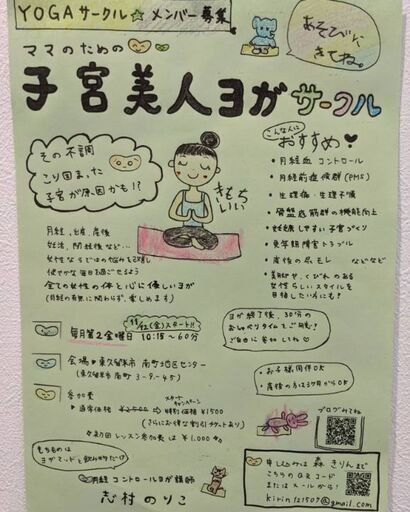 YOGAサークル☆メンバー募集
あそびに
きてね。
ママのための
子宮美人ヨガサークル
その不調
こり固まった
子宮が原因かも!?
きもち
いい
こんな人に
おすすめ♥
・月経血コントロール
・月経前症候群(PMS)
・生理痛・生理不順
・骨盤底筋群の機能向上
・妊娠しやすい子宮づくり
・更年期障害トラブル
・産後の尿モレ などなど
・美脚や、くびれのある
女性らしいスタイルを
目指したい方にも!
月経、出産、産後
妊活、閉経後など…
女性ならではの悩みを改善し
健やかな毎日過ごせるよう
全ての女性の体と心に優しいヨガ
(月経の有無に関わらず、楽しめます)
11/12(金)スタート!!
毎月第2金曜日 10:15〜60分
会場▶東久留米市 南町地区センター
(東久留米市南町 3-9-45)
参加費
▶通常価格 ¥2500→
スタート
キャンペーン
特別価格 ¥1500
(さらにお得な割引チケットあり)
☆初回レッスン参加費は ¥1,000☆
ヨガ終了後、30分の
おしゃべりタイムをご用意!
ご自由に参加してね♡
・お子様同伴OK
・産後の方は3ヶ月からOK
もちものは
ヨガマットと飲み物だけ♡
月経コントロールヨガ講師
志村のりこ
ブログみてね
申し込みは 森 きりん まで
こちらのQRコード
またはメールから!
kirin121507@gmail.com